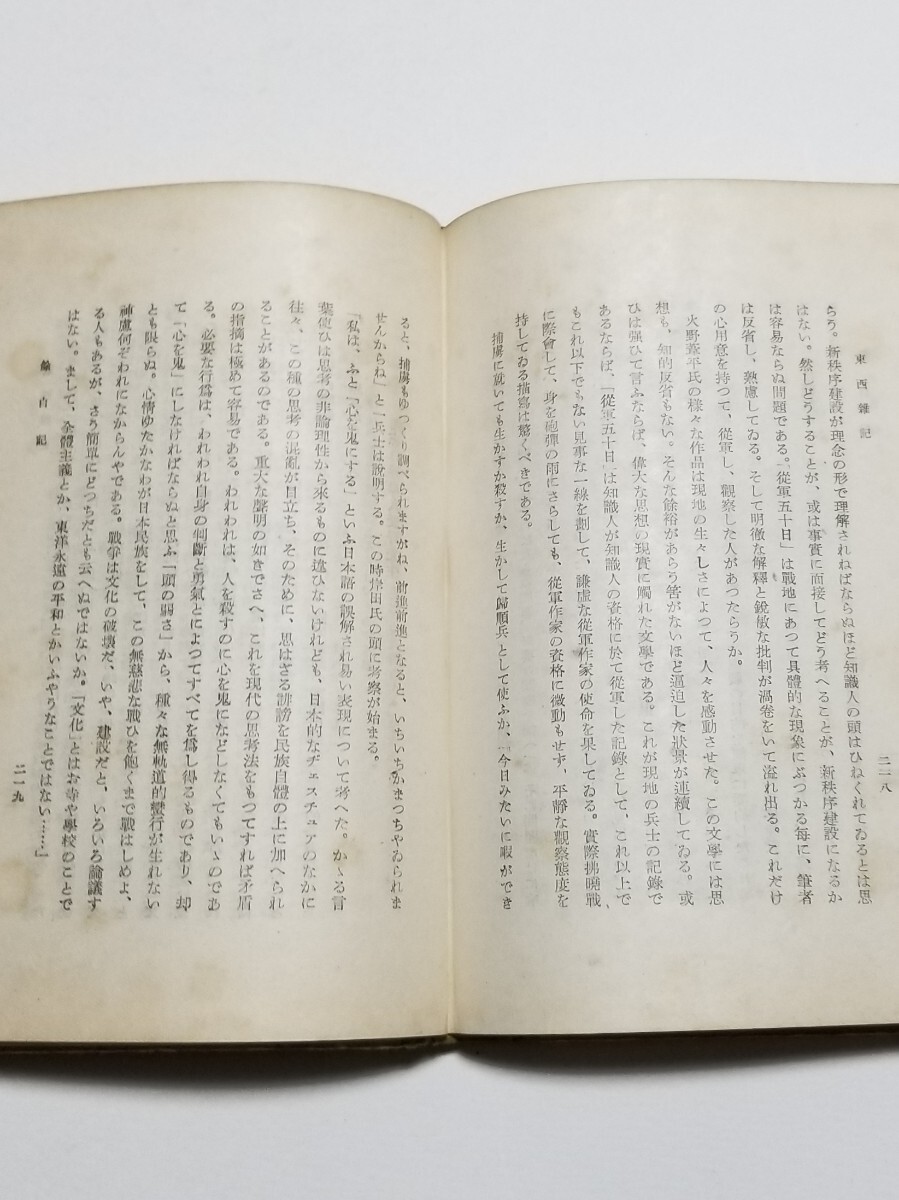 東西雜記
二一八
らう。新秩序建設が理念の形で理解されねばならぬほど知識人の頭はひねくれてゐるとは思
はない。然しどうすることが、或は事實に面接してどう考へることが、新秩序建設になるか
は容易ならぬ問題である。「從軍五十日」は戰地にあつて具體的な現象にぶつかる每に、筆者
は反省し、熟慮してゐる。そして明徹な解釋と銳敏な批判が渦卷をいて溢れ出る。これだけ
の心用意を持つて、從軍し、觀察した人があつたらうか。
火野葦平氏の樣々な作品は現地の生々しさによつて、人々を感動させた。この文學には思
想も、知的反省もない。そんな餘裕があらう筈がないほど逼迫した狀景が連續してゐる。或
ひは强ひて言ふならば、偉大な思想の現實に觸れた文學である。これが現地の兵士の記錄で
あるならば、「從軍五十日」は知識人が知識人の資格に於て從軍した記錄として、これ以上で
もこれ以下でもない見事な一線を劃して、謙虛な從軍作家の使命を果してゐる。實際拂曉戰
に際會して、身を砲彈の雨にさらしても、從軍作家の資格に微動もせず、平靜な觀察態度を
持してゐる描寫は驚くべきである。
捕虜に就いても生かすか殺すか、生かして歸順兵として使ふか、「今日みたいに暇ができ
ると、捕虜もゆつくり調べられますがね、前進前進となると、いちいちかまつちやゐられま
せんからね」と一兵士は說明する。この時岸田氏の頭に考察が始まる。
「私は、ふと「心を鬼にする」といふ日本語の誤解され易い表現について考へた。かゝる言
葉使ひは思考の非論理性から來るものに違ひないけれども、日本的なヂェスチュアのなかに
往々、この種の思考の混亂が目立ち、そのために、思はざる誹謗を民族自體の上に加へられ
ることがあるのである。重大な聲明の如きでさへ、これを現代の思考法をもつてすれば矛盾
の指摘は極めて容易である。われわれは、人を殺すのに心を鬼になどしなくてもいゝのであ
る。必要な行爲は、われわれ自身の判斷と勇氣とによつてすべてを爲し得るものであり、却
て「心を鬼」にしなければならぬと思ふ「頭の弱さ」から、種々な無軌道的蠻行が生れない
とも限らぬ。心情ゆたかなわが日本民族をして、この無慈悲な戰ひを飽くまで戰はしめよ、
神慮何ぞわれになからんやである。戰爭は文化の破壞だ、いや、建設だと、いろいろ論議す
る人もあるが、さう簡單にどつちだとも云へぬではないか。「文化」とはお寺や學校のことで
はない。まして、全體主義とか、東洋永遠の平和とかいふやうなことではない……」
餘白記
二一九